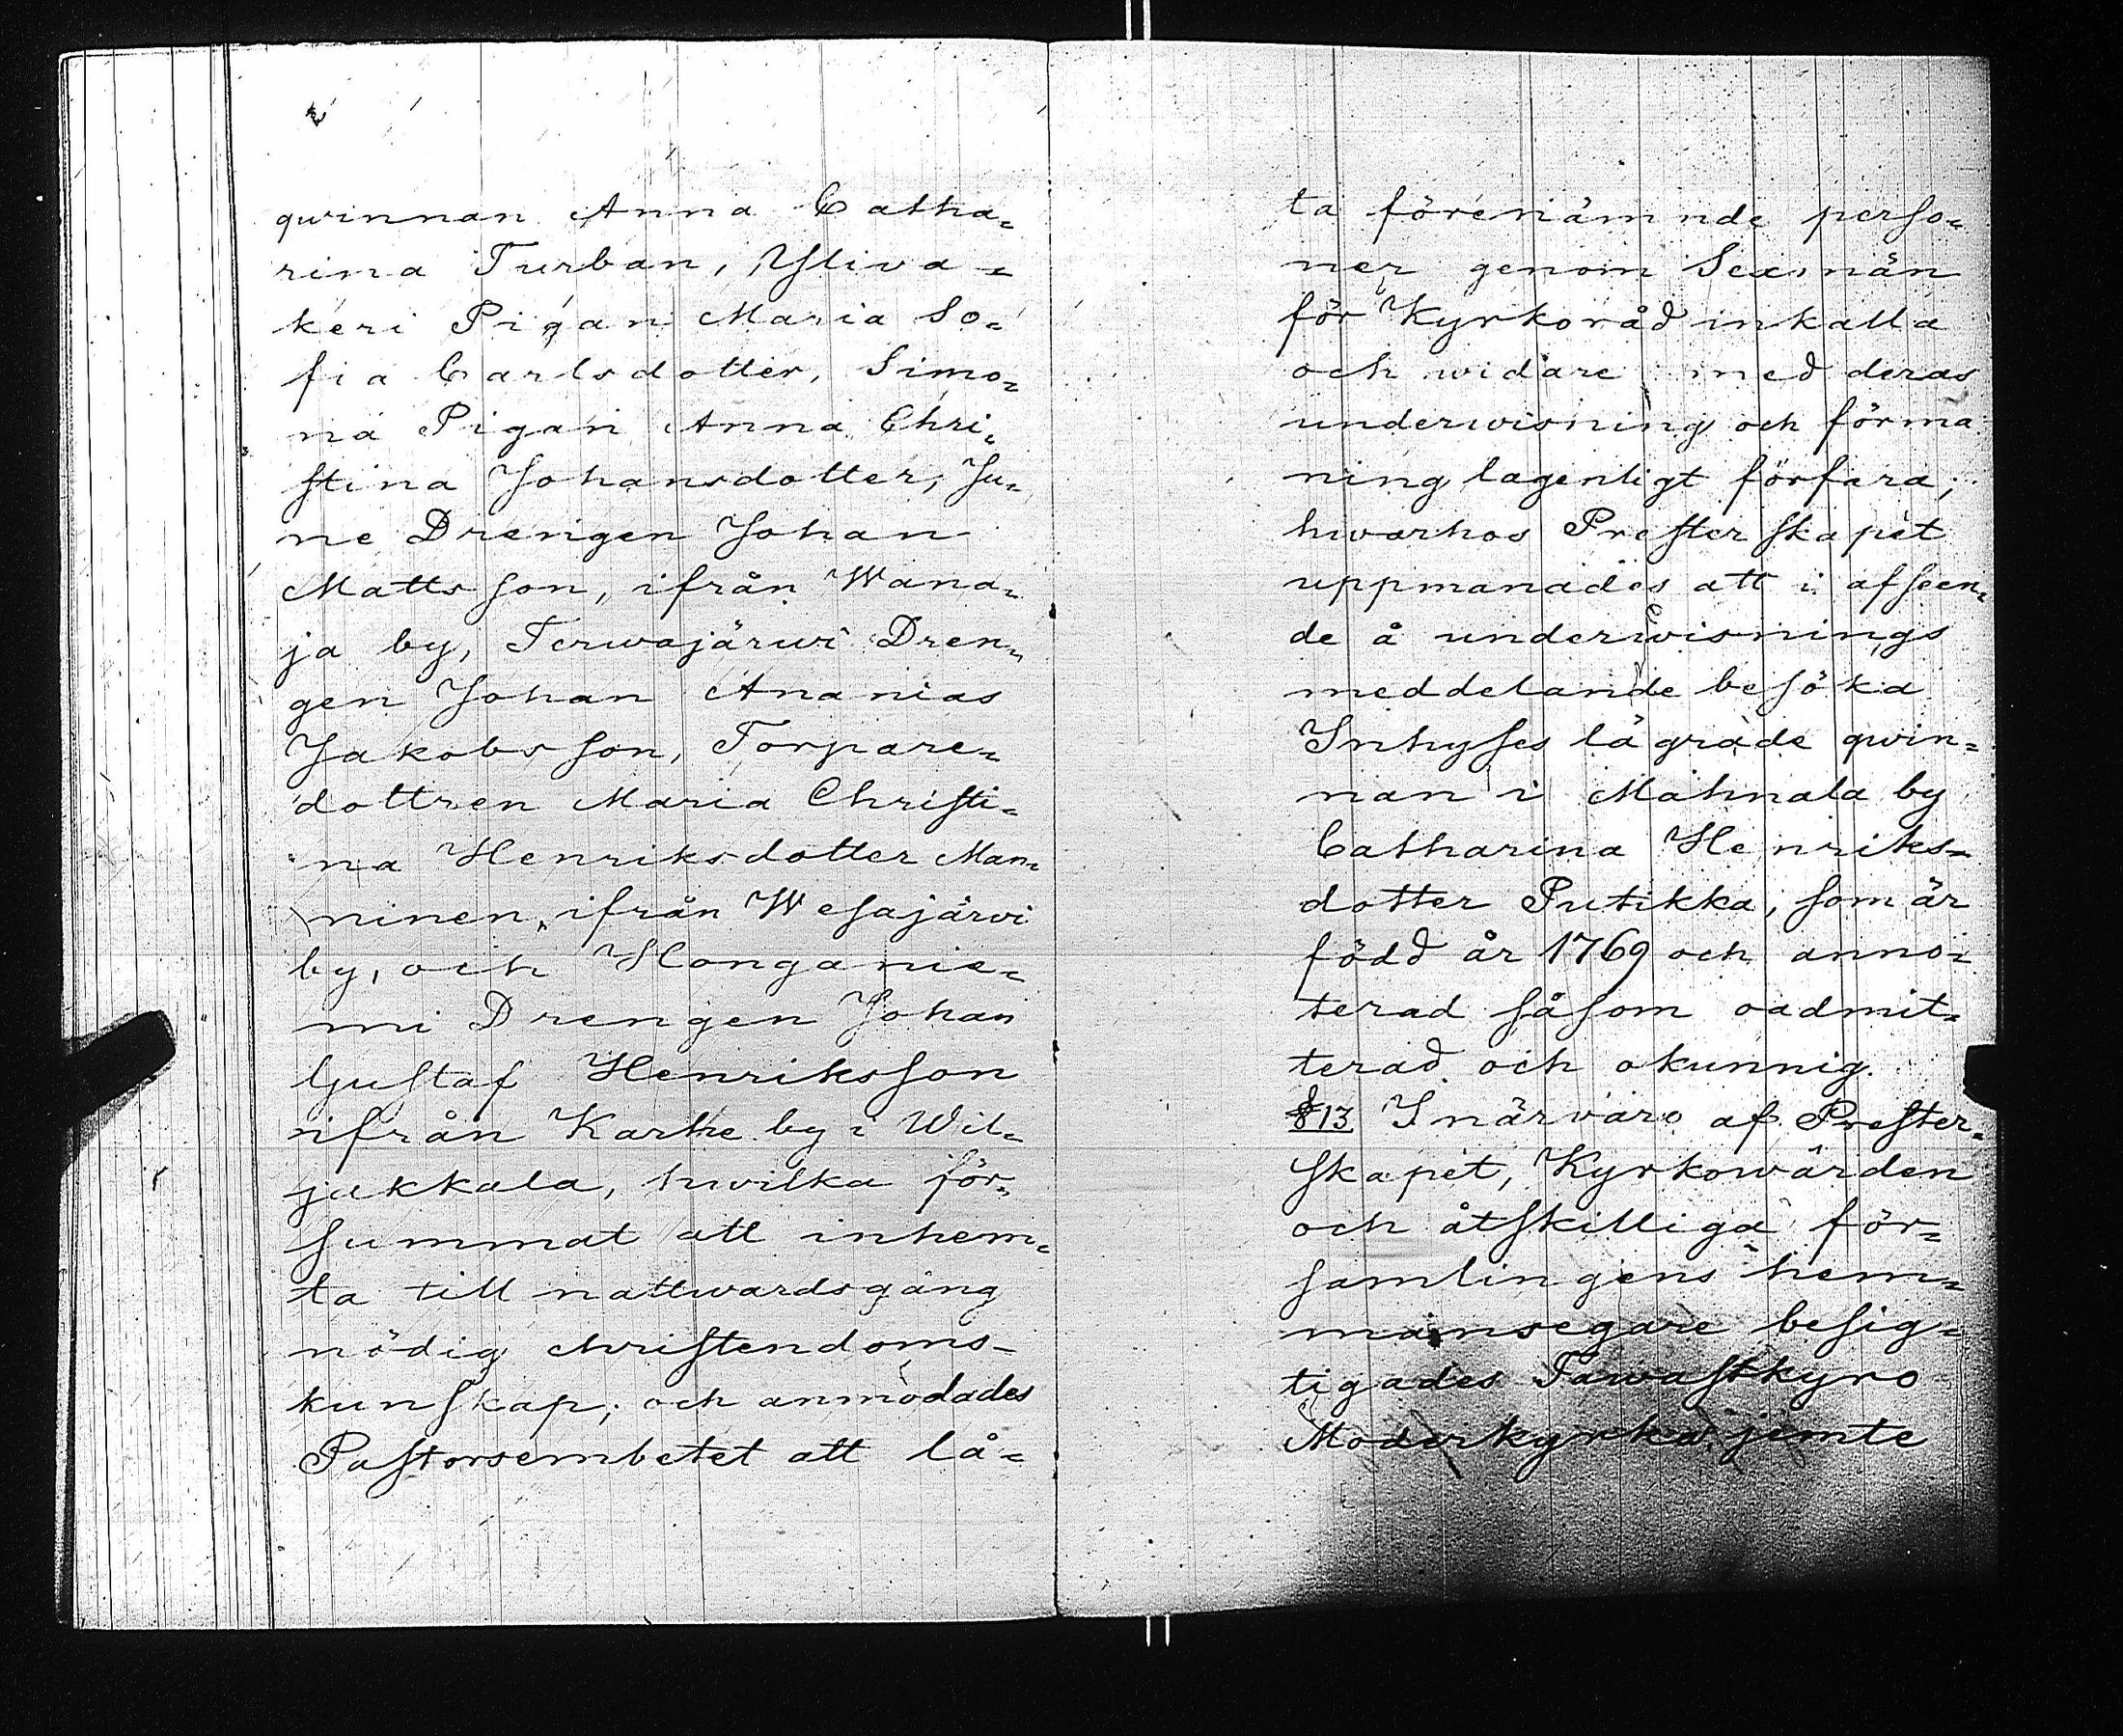 qwinnan Anna Catha=
rina Turban, Yliva=
keri Pigan Maria So=
fia Carlsdotter, Simo=
na Pigan Anna Chri=
stina Johansdotter, Ju=
ne Drengen Johan
Mattsson, ifrån Wana=
ja by, Terwajärwi Dren=
gen Johan Ananias
Jakobsson, Torpare=
dottren Maria Christi=
na Henriksdotter Man=
ninen, ifrån Wesajärvi
by, och Honganie=
mi Drengen Johan
Gustaf Henriksson
ifrån Karhe by i Wil=
jakkala, hwilka för=
summat att inhem=
ta till nattwardsgång
nödig christendoms=
kunskap; och anmodades
Pastorsembetet att lå=
ta förenämnde perso=
ner genom Sexmän
för Kyrkoråd inkalla
och widare med deras
underwisning och förma
ning lagenligt förfara;
hwarhos Presterskapet
uppmanades att i afseen=
de å underwisnings
meddelande besöka
Inhyses lägrade qwin=
nan i Mahnala by
Catharina Henriks=
dotter Putikka, som är
född år 1769 och anno=
terad såsom oadmit=
terad och okunnig.
§13 I närvaro af Prester=
skapet, Kyrkowärden
och åtskilliga för=
samlingens hem=
mansegare besig=
tigades Tawastkyro
Moderkyrka, jemte